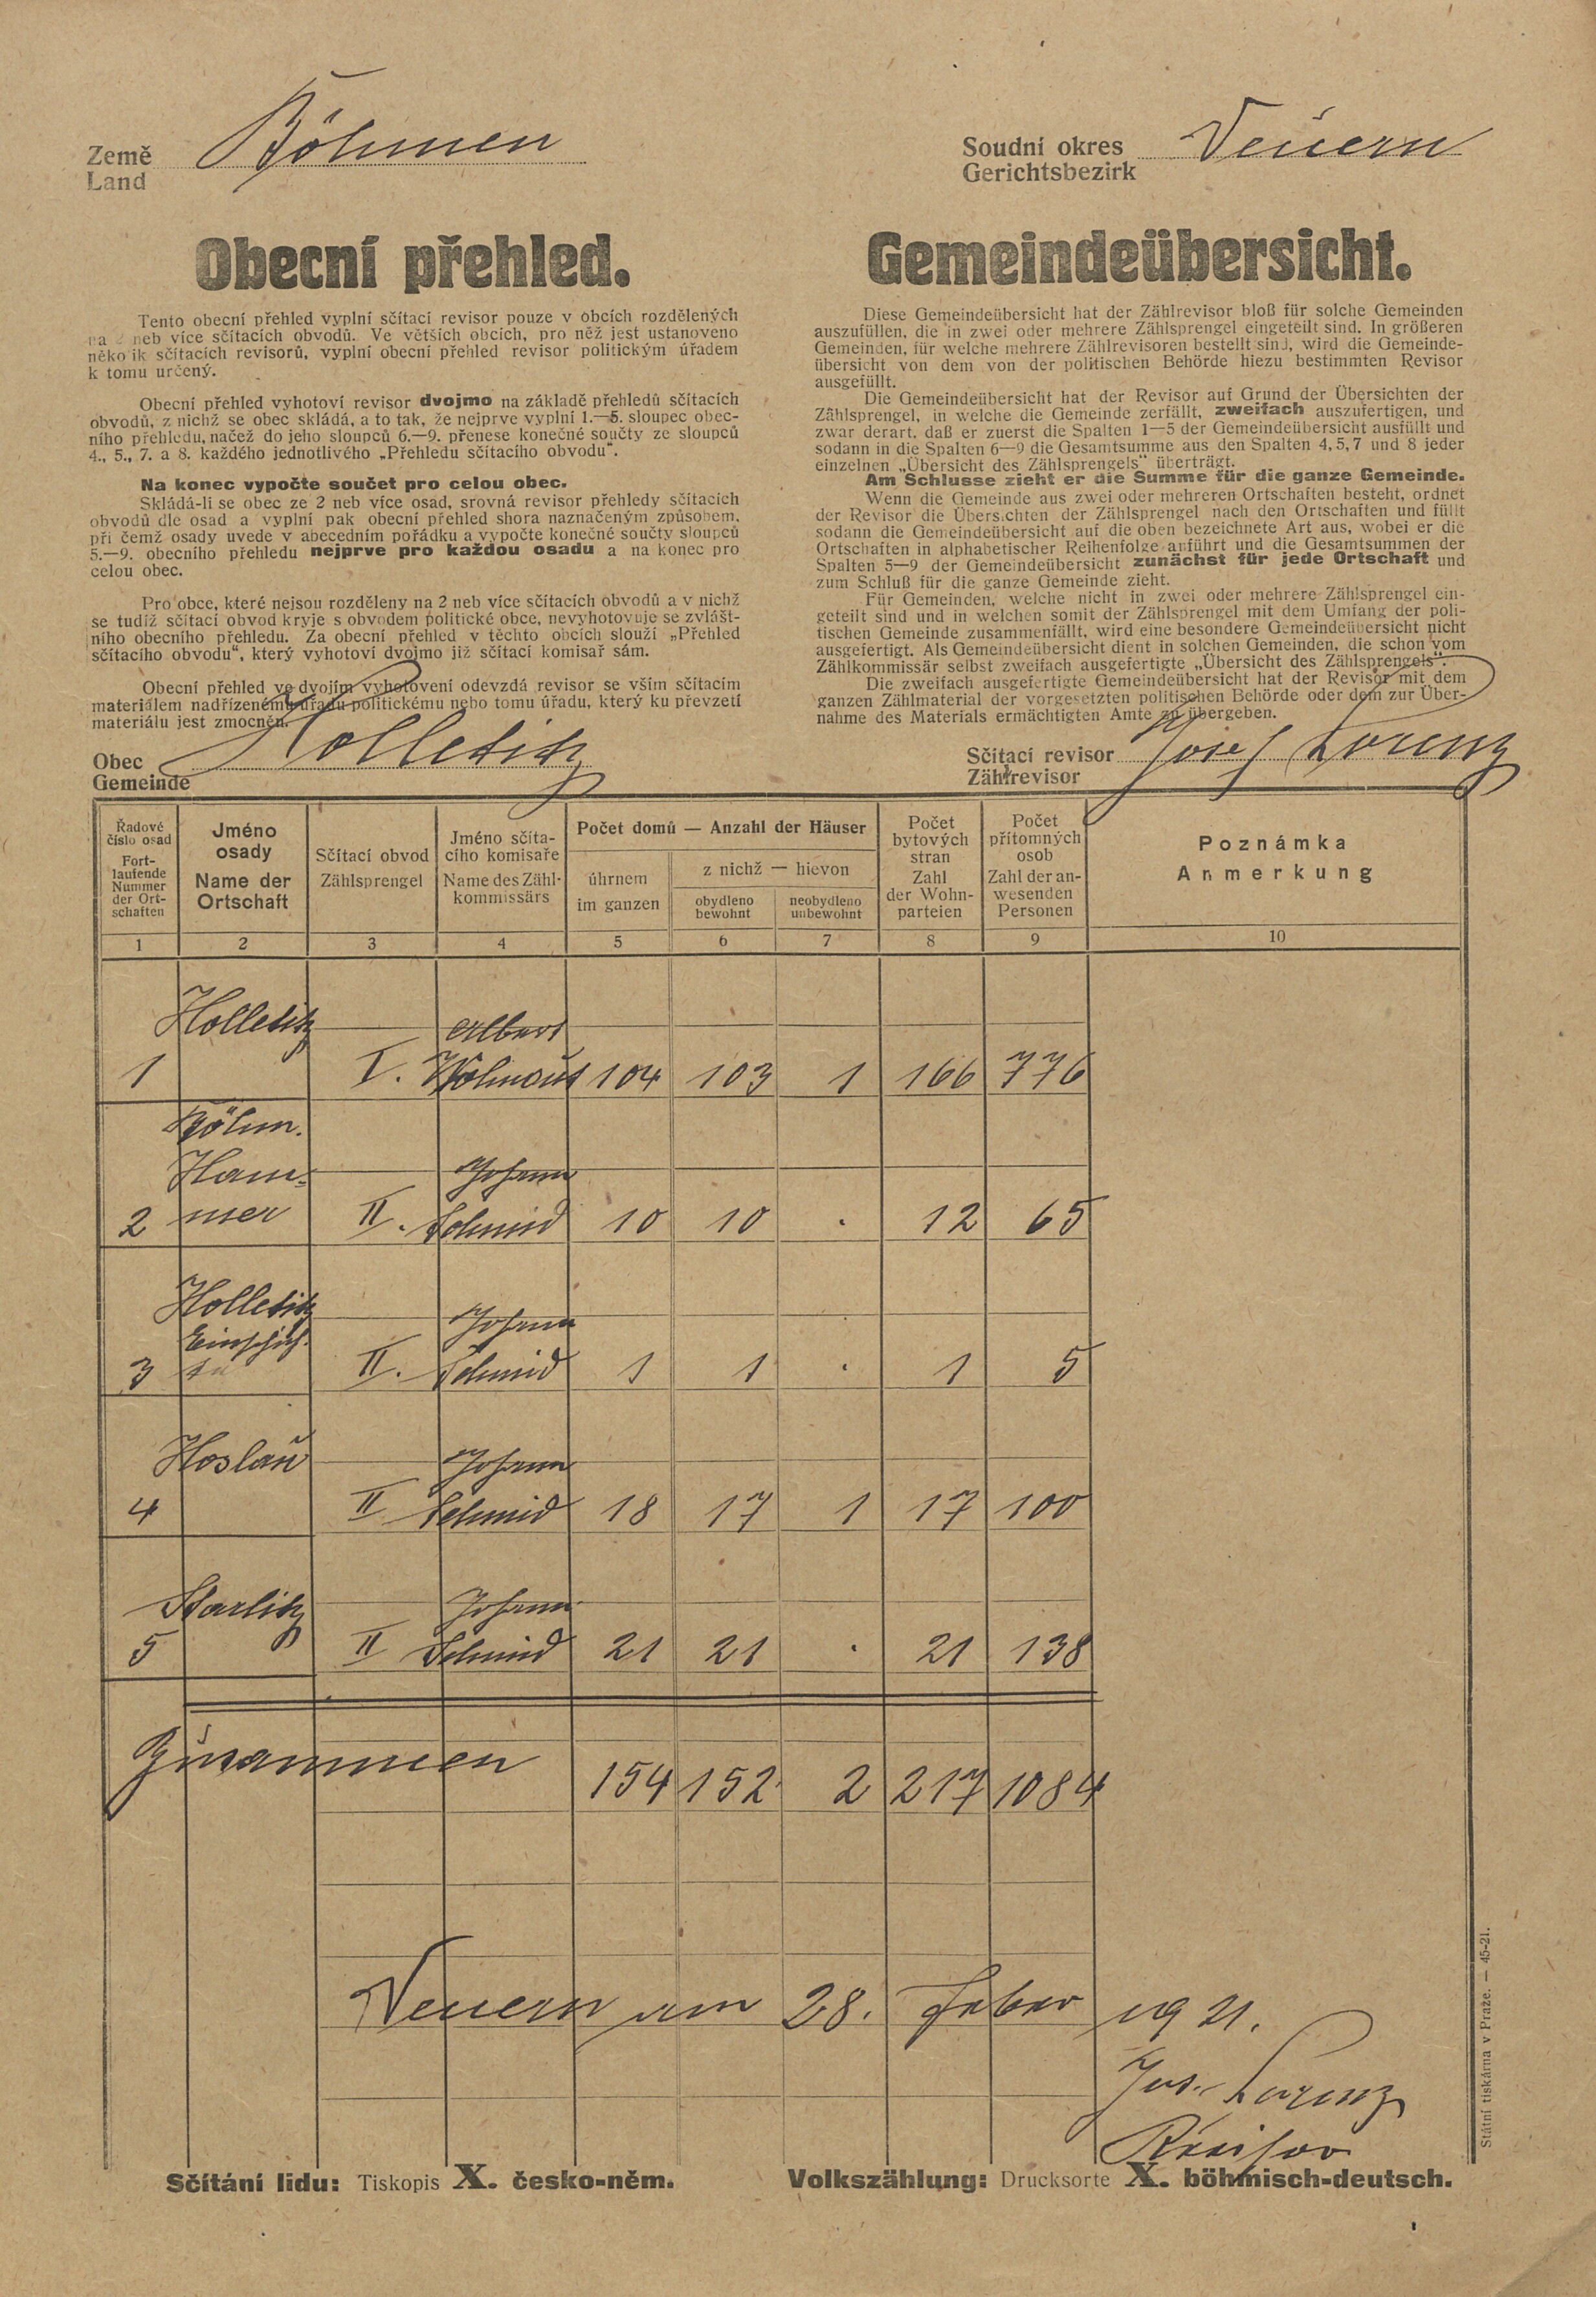 Země
Land
Böhmen
Soudní okres
Gerichtsbezirk
Neuern
Obecní přehled.
Tento obecní přehled vyplní sčítací revisor pouze v obcích rozdělených
na 2 neb více sčítacích obvodů. Ve větších obcích, pro něž jest ustanoveno
několik sčítacích revisorů, vyplní obecní přehled revisor politickým úřadem
k tomu určený.
Obecní přehled vyhotoví revisor dvojmo na základě přehledů sčítacích
obvodů, z nichž se obec skládá, a to tak, že nejprve vyplní 1.—5. sloupec obec-
ního přehledu, načež do jeho sloupců 6.—9. přenese konečné součty ze sloupců
4., 5., 7. a 8. každého jednotlivého „Přehledu sčítacího obvodu“.
Na konec vypočte součet pro celou obec.
Skládá-li se obec ze 2 neb více osad, srovná revisor přehledy sčítacích
obvodů dle osad a vyplní pak obecní přehled shora naznačeným způsobem,
při čemž osady uvede v abecedním pořádku a vypočte konečné součty sloupců
5.—9. obecního přehledu nejprve pro každou osadu a na konec pro
celou obec.
Pro obce, které nejsou rozděleny na 2 neb více sčítacích obvodů a v nichž
se tudíž sčítací obvod kryje s obvodem politické obce, nevyhotovuje se zvlášt-
ního obecního přehledu. Za obecní přehled v těchto obcích slouží „Přehled
sčítacího obvodu“, který vyhotoví dvojmo již sčítací komisař sám.
Obecní přehled ve dvojím vyhotovení odevzdá revisor se vším sčítacím
materiálem nadřízenému úřadu politickému nebo tomu úřadu, který ku převzetí
materiálu jest zmocněn.
Gemeindeübersicht.
Diese Gemeindeübersicht hat der Zählrevisor bloß für solche Gemeinden
auszufüllen, die in zwei oder mehrere Zählsprengel eingeteilt sind. In größeren
Gemeinden, für welche mehrere Zählrevisoren bestellt sind, wird die Gemeinde-
übersicht von dem von der politischen Behörde hiezu bestimmten Revisor
ausgefüllt.
Die Gemeindeübersicht hat der Revisor auf Grund der Übersichten der
Zählsprengel, in welche die Gemeinde zerfällt, zweifach auszufertigen, und
zwar derart, daß er zuerst die Spalten 1—5 der Gemeindeübersicht ausfüllt und
sodann in die Spalten 6—9 die Gesamtsumme aus den Spalten 4, 5, 7 und 8 jeder
einzelnen „Übersicht des Zählsprengels“ überträgt.
Am Schlusse zieht er die Summe für die ganze Gemeinde.
Wenn die Gemeinde aus zwei oder mehreren Ortschaften besteht, ordnet
der Revisor die Übersichten der Zählsprengel nach den Ortschaften und füllt
sodann die Gemeindeübersicht auf die oben bezeichnete Art aus, wobei er die
Ortschaften in alphabetischer Reihenfolge anführt und die Gesamtsummen der
Spalten 5—9 der Gemeindeübersicht zunächst für jede Ortschaft und
zum Schluß für die ganze Gemeinde zieht.
Für Gemeinden, welche nicht in zwei oder mehrere Zählsprengel ein-
geteilt sind und in welchen somit der Zählsprengel mit dem Umfang der poli-
tischen Gemeinde zusammenfällt, wird eine besondere Gemeindeübersicht nicht
ausgefertigt. Als Gemeindeübersicht dient in solchen Gemeinden, die schon vom
Zählkommissär selbst zweifach ausgefertigte „Übersicht des Zählsprengels“.
Die zweifach ausgefertigte Gemeindeübersicht hat der Revisor mit dem
ganzen Zählmaterial der vorgesetzten politischen Behörde oder dem zur Über-
nahme des Materials ermächtigten Amte zu übergeben.
Obec
Gemeinde
Holletitz
Sčítací revisor
Zählrevisor
Josef Lorenz
Řadové číslo osad
Fort-laufende Nummer der Ort-schaften
Jméno osady
Name der Ortschaft
Sčítací obvod
Zählsprengel
Jméno sčíta-cího komisaře
Name des Zähl-kommissärs
Počet domů — Anzahl der Häuser
úhrnem
im ganzen
z nichž — hievon
obydleno
bewohnt
neobydleno
unbewohnt
Počet bytových stran
Zahl der Wohn-parteien
Počet přítomných osob
Zahl der an-wesenden Personen
Poznámka
Anmerkung
1 2 3 4 5 6 7 8 9 10
Holletitz Albert
1 I. 104 103 1 166 776
Böhm.
Ham= Johann
2 mer II. Schmid 10 10 . 12 65
Holletitz Johann
Einschich.
3 II. Schmid 1 1 . 1 5
Hoslau Johann
4 II Schmid 18 17 1 17 100
Starlitz Johann
5 II Schmid 21 21 . 21 138
Zusammen 154 152 2 217 1084
Neuern am 28. Feber 1921.
Jos. Lorenz
Revisor
Sčítání lidu: Tiskopis X. česko-něm.
Volkszählung: Drucksorte X. böhmisch-deutsch.
Státní tiskárna v Praze. — 45-21.